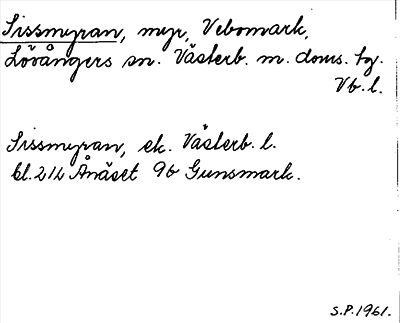 Sissmyran, myr, Vebomark,
Lövångers sn. Västerb. m. doms. tg.
Vb. l.
Sissmyran, ek. Västerb. l.
bl. 214 Ånäset 9b Gunsmark.
S.P. 1961.